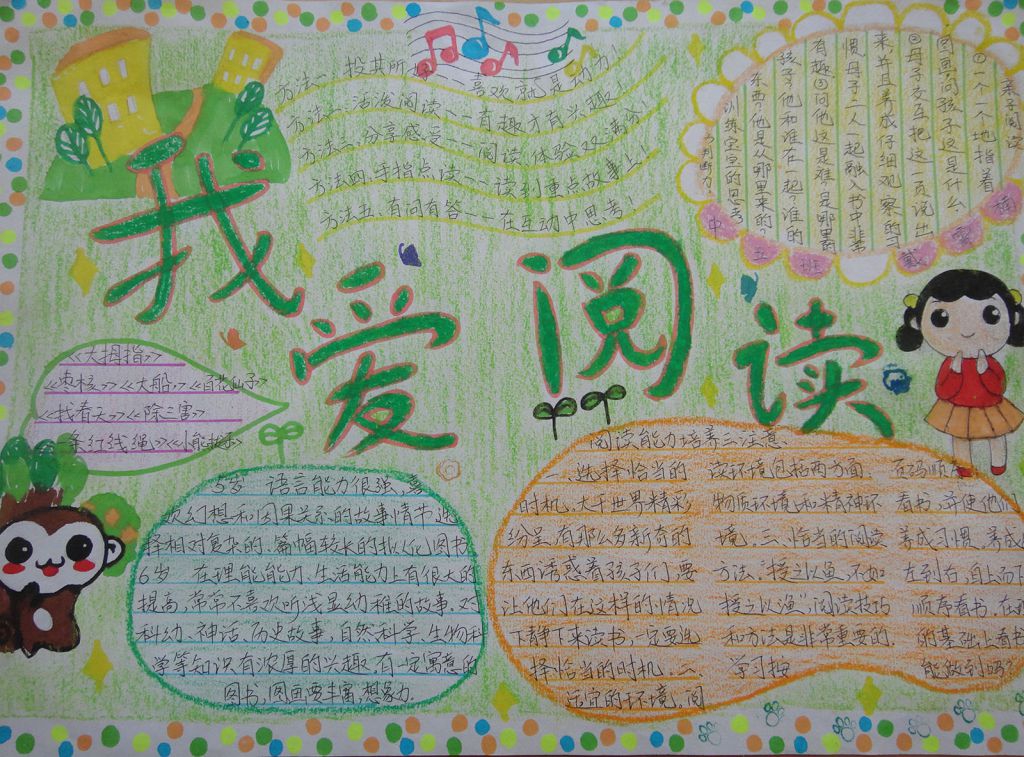 我爱阅读
方法一、投其所好 喜欢就是动力!
方法二、活泼阅读——有趣才有兴趣!
方法三、分享感受——阅读,体验双满分!
方法四、手指点读——读到重点故事上!
方法五、有问有答——在互动中思考!
亲子阅读
①一个一个地指着
图画问孩子这是什么.
②母子交互把这一页说出
来,并且养成仔细观察的习
惯,母子二人一起融入书中非常
有趣③问他这是谁?是哪里的
孩子?他和谁在一起?谁的
东西?他是从哪里来的?
训练宝宝的思考
为判断力.
中五班戴
《大拇指》
《枣核》《大船》《百花仙子》
《找春天》《除三害》
一条红线绳》
5岁 语言能力很强,喜
欢幻想和因果关系的故事情节,选
择相对复杂的、篇幅较长的拟人化图书
6岁 在理能能力、生活能力上有很大的
提高,常常不喜欢听浅显幼稚的故事.对
科幻、神话、历史故事,自然科学、生物科
学等知识有浓厚的兴趣.有一定寓意的
图书,图画要丰富,想象力.
阅读能力培养三注意
一、选择恰当的
时机,大千世界精彩
纷呈,有那么多新奇的
东西诱惑着孩子们,要
让他们在这样的情况
下静下来读书,一定要选
择恰当的时机,二、
乐守的环境,阅
读环境包括两方面.
物质环境和精神环
境.三、恰当的阅读
方法,"授之以鱼,不如
授之以渔",阅读技巧
和方法是非常重要的.
学习按
页码顺序
看书,并使他们
养成习惯,养成
左到右,自上而下
顺序看书,在
的基础上看书
能做到吗?